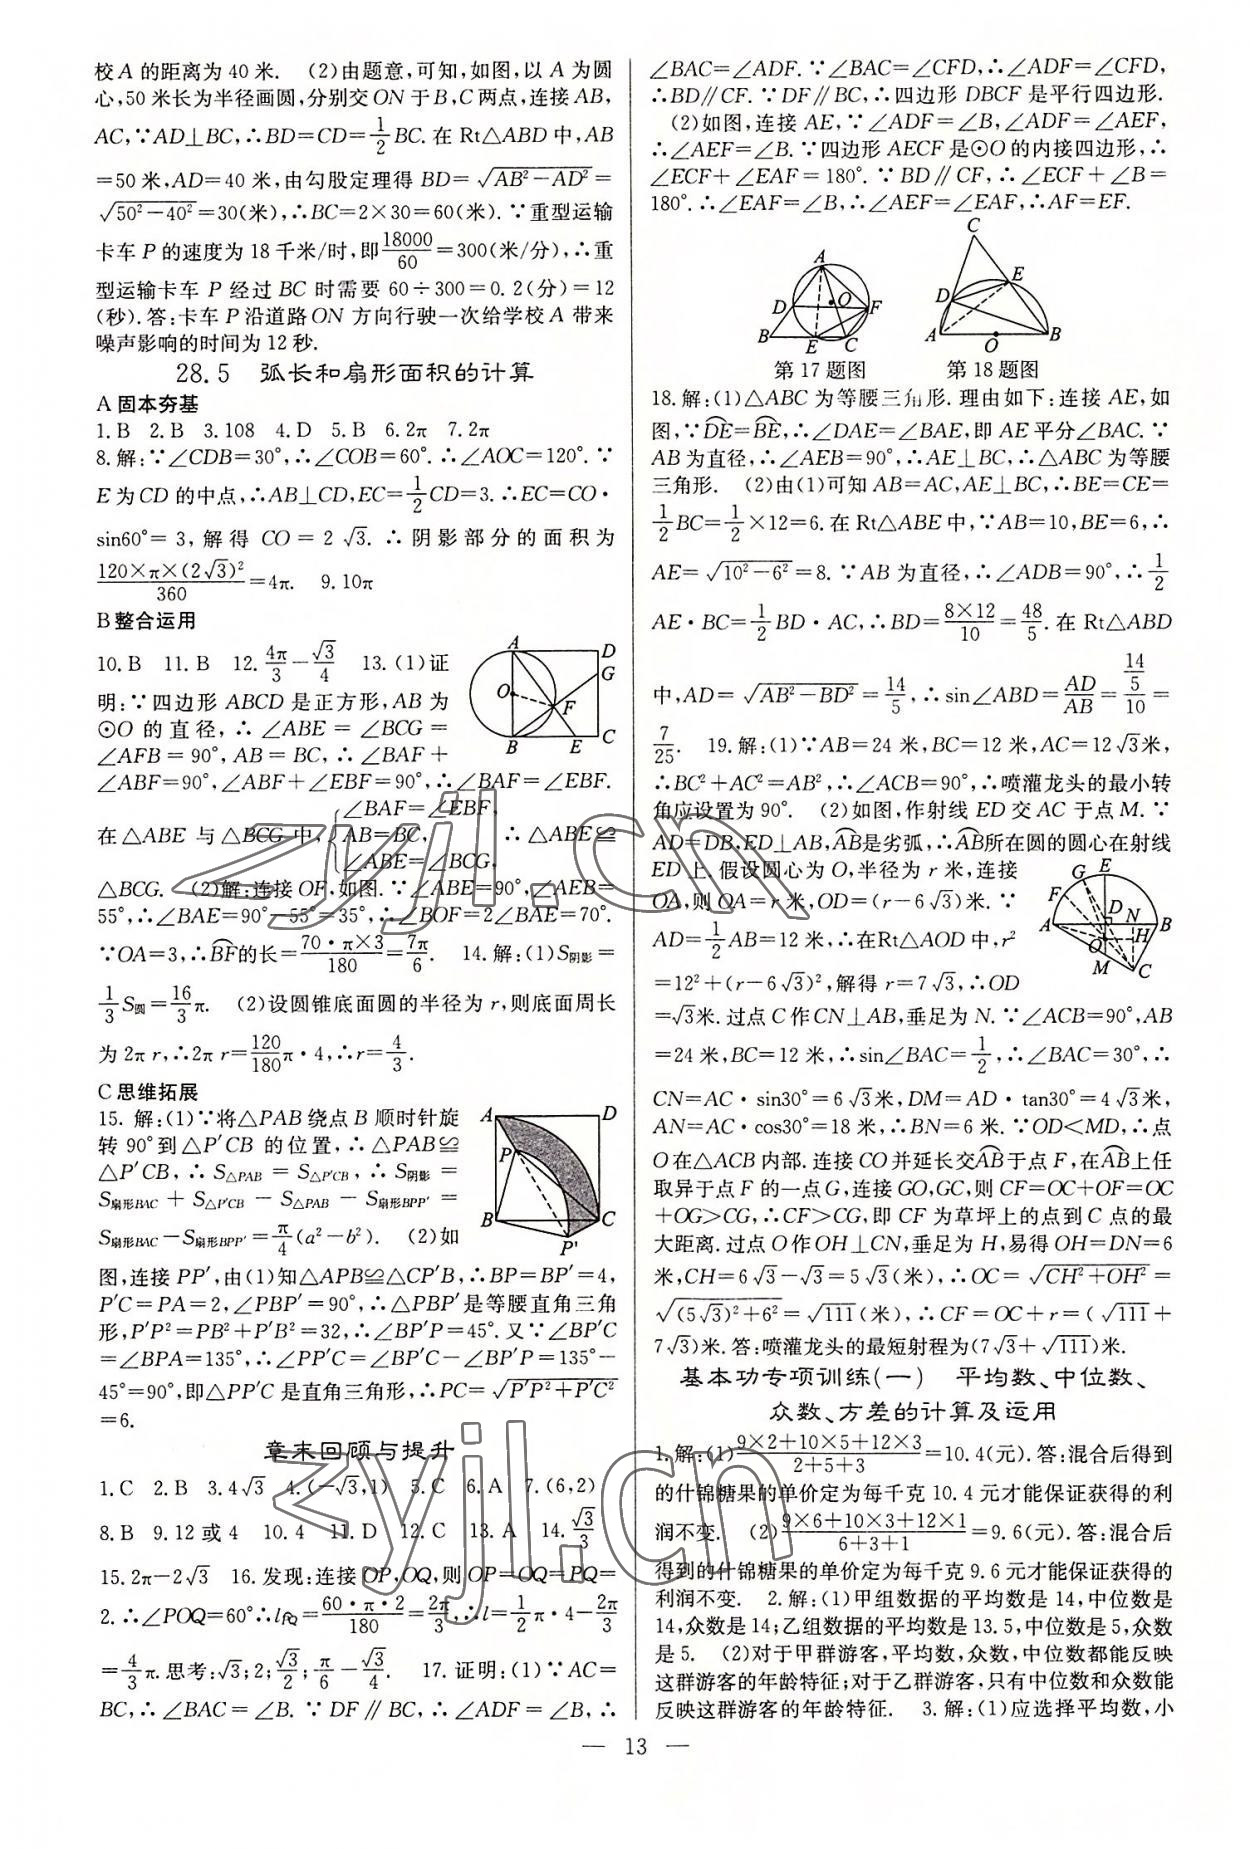 校A的距离为40米. (2)由题意,可知,如图,以A为圆
心,50米长为半径画圆,分别交ON于B,C两点,连接AB,
AC,∵AD⊥BC,∴BD=CD=1/2BC.在Rt△ABD中,AB
=50米,AD=40米,由勾股定理得BD=√(AB²-AD²)=
√(50²-40²)=30(米),∴BC=2×30=60(米).∵重型运输
卡车P的速度为18千米/时,即18000/60=300(米/分),∴重
型运输卡车P经过BC时需要60÷300=0.2(分)=12
(秒).答:卡车P沿道路ON方向行驶一次给学校A带来
噪声影响的时间为12秒.
28.5 弧长和扇形面积的计算
A固本夯基
1.B 2.B 3.108 4.D 5.B 6.2π 7.2π
8.解:∵∠CDB=30°,∴∠COB=60°.∴∠AOC=120°.∵
E为CD的中点,∴AB⊥CD,EC=1/2CD=3.∴EC=CO·
sin60°=3,解得CO=2√3.∴阴影部分的面积为
120×π×(2√3)²/360=4π. 9.10π
B整合运用
10.B 11.B 12.4π/3-√3/4 13.(1)证
明:∵四边形ABCD是正方形,AB为
⊙O的直径,∴∠ABE=∠BCG=
∠AFB=90°,AB=BC,∴∠BAF+
∠ABF=90°,∠ABF+∠EBF=90°,∴∠BAF=∠EBF.
在△ABE与△BCG中,{∠BAF=∠EBF, AB=BC, ∠ABE=∠BCG, ∴△ABE≌
△BCG. (2)解:连接OF,如图.∵∠ABE=90°,∠AEB=
55°,∴∠BAE=90°-55°=35°,∴∠BOF=2∠BAE=70°.
∵OA=3,∴B͡F的长=70·π×3/180=7π/6. 14.解:(1)S阴影=
1/3S圆=16/3π. (2)设圆锥底面圆的半径为r,则底面周长
为2πr,∴2πr=120/180π·4,∴r=4/3.
C思维拓展
15.解:(1)∵将△PAB绕点B顺时针旋
转90°到△P′CB的位置,∴△PAB≌
△P′CB,∴S△PAB=S△P′CB,∴S阴影=
S扇形BAC+S△P′CB-S△PAB-S扇形BPP′=
S扇形BAC-S扇形BPP′=π/4(a²-b²). (2)如
图,连接PP′,由(1)知△APB≌△CP′B,∴BP=BP′=4,
P′C=PA=2,∠PBP′=90°,∴△PBP′是等腰直角三角
形,P′P²=PB²+P′B²=32,∴∠BP′P=45°.又∵∠BP′C
=∠BPA=135°,∴∠PP′C=∠BP′C-∠BP′P=135°-
45°=90°,即△PP′C是直角三角形,∴PC=√(P′P²+P′C²)
=6.
章末回顾与提升
1.C 2.B 3.4√3 4.(-√3,1) 5.C 6.A 7.(6,2)
8.B 9.12或4 10.4 11.D 12.C 13.A 14.√3/3
15.2π-2√3 16.发现:连接OP,OQ,则OP=OQ=PQ=
2.∴∠POQ=60°∴lP͡Q=60·π·2/180=2π/3,∴l=1/2π·4-2π/3
=4/3π.思考:√3;2;√3/2;π/6-√3/4. 17.证明:(1)∵AC=
BC,∴∠BAC=∠B.∵DF∥BC,∴∠ADF=∠B,∴
∠BAC=∠ADF.∵∠BAC=∠CFD,∴∠ADF=∠CFD,
∴BD∥CF.∵DF∥BC,∴四边形DBCF是平行四边形.
(2)如图,连接AE,∵∠ADF=∠B,∠ADF=∠AEF,
∴∠AEF=∠B.∵四边形AECF是⊙O的内接四边形,∴
∠ECF+∠EAF=180°.∵BD∥CF,∴∠ECF+∠B=
180°.∴∠EAF=∠B,∴∠AEF=∠EAF,∴AF=EF.
第17题图 第18题图
18.解:(1)△ABC为等腰三角形.理由如下:连接AE,如
图,∵D͡E=B͡E,∴∠DAE=∠BAE,即AE平分∠BAC.∵
AB为直径,∴∠AEB=90°,∴AE⊥BC,∴△ABC为等腰
三角形. (2)由(1)可知AB=AC,AE⊥BC,∴BE=CE=
1/2BC=1/2×12=6.在Rt△ABE中,∵AB=10,BE=6,∴
AE=√(10²-6²)=8.∵AB为直径,∴∠ADB=90°,∴1/2
AE·BC=1/2BD·AC,∴BD=8×12/10=48/5.在Rt△ABD
中,AD=√(AB²-BD²)=14/5,∴sin∠ABD=AD/AB=(14/5)/10=
7/25. 19.解:(1)∵AB=24米,BC=12米,AC=12√3米,
∴BC²+AC²=AB²,∴∠ACB=90°,∴喷灌龙头的最小转
角应设置为90°. (2)如图,作射线ED交AC于点M.∵
AD=DB,ED⊥AB,A͡B是劣弧,∴A͡B所在圆的圆心在射线
ED上.假设圆心为O,半径为r米,连接
OA,则OA=r米,OD=(r-6√3)米.∵
AD=1/2AB=12米,∴在Rt△AOD中,r²
=12²+(r-6√3)²,解得r=7√3,∴OD
=√3米.过点C作CN⊥AB,垂足为N.∵∠ACB=90°,AB
=24米,BC=12米,∴sin∠BAC=1/2,∴∠BAC=30°,∴
CN=AC·sin30°=6√3米,DM=AD·tan30°=4√3米,
AN=AC·cos30°=18米,∴BN=6米.∵OD<MD,∴点
O在△ACB内部.连接CO并延长交A͡B于点F,在A͡B上任
取异于点F的一点G,连接GO,GC,则CF=OC+OF=OC
+OG>CG,∴CF>CG,即CF为草坪上的点到C点的最
大距离.过点O作OH⊥CN,垂足为H,易得OH=DN=6
米,CH=6√3-√3=5√3(米),∴OC=√(CH²+OH²)=
√((5√3)²+6²)=√111(米),∴CF=OC+r=(√111+
7√3)米.答:喷灌龙头的最短射程为(7√3+√111)米.
基本功专项训练(一) 平均数、中位数、
众数、方差的计算及运用
1.解:(1)(9×2+10×5+12×3)/(2+5+3)=10.4(元).答:混合后得到
的什锦糖果的单价定为每千克10.4元才能保证获得的利
润不变. (2)(9×6+10×3+12×1)/(6+3+1)=9.6(元).答:混合后
得到的什锦糖果的单价定为每千克9.6元才能保证获得的
利润不变. 2.解:(1)甲组数据的平均数是14,中位数是
14,众数是14;乙组数据的平均数是13.5,中位数是5,众数
是5. (2)对于甲群游客,平均数,众数,中位数都能反映
这群游客的年龄特征;对于乙群游客,只有中位数和众数能
反映这群游客的年龄特征. 3.解:(1)应选择平均数,小
— 13 —
zyjl.cn
zyjl.cn